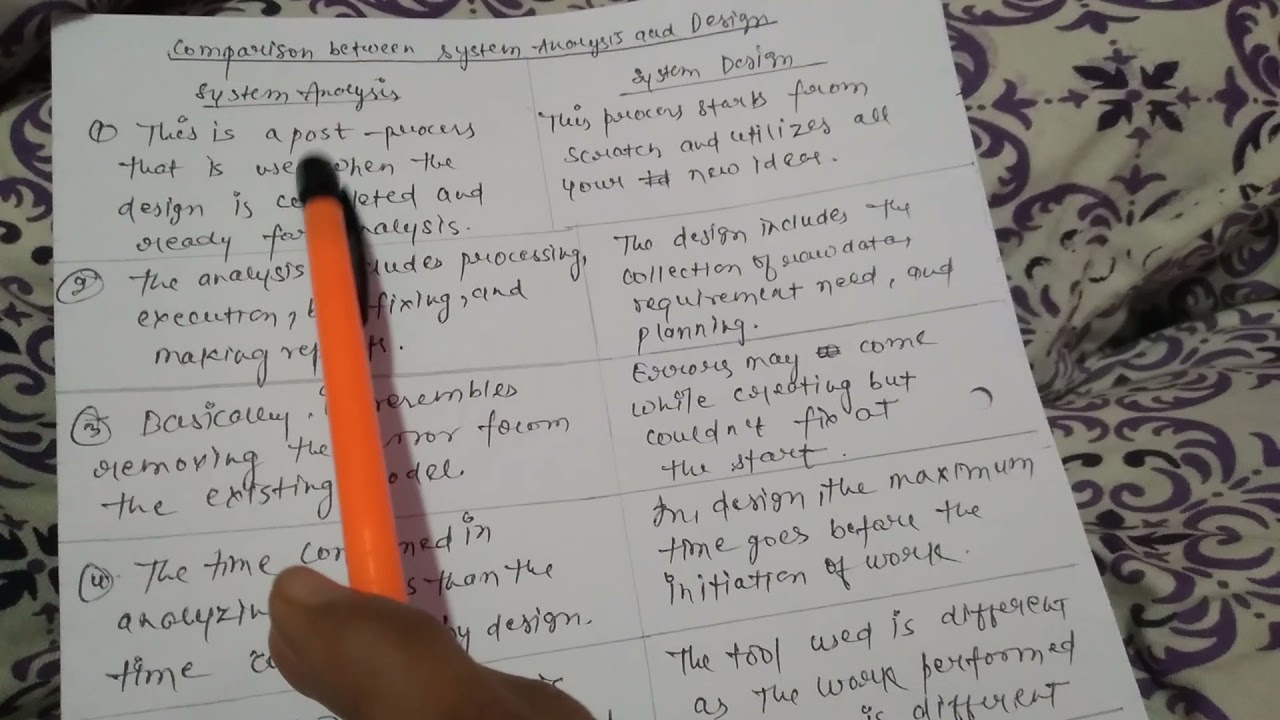 Comparison between System Analysis and Design
System Analysis
① This is a post-process
that is when the
design is and
ready analysis.
② The analysis processing,
execution, fixing, and
making
③ Basically. resembles
removing the from
the existing
④ The time in
than the
time by design.
System Design
This process starts from
scratch and utilizes all
your new ideas.
The design includes the
collection of raw data,
requirement need, and
planning.
Errors may come
while creating but
couldn't fix at
the start.
In, design, the maximum
time goes before the
initiation of work.
The tool used is different
as the work performed
is different